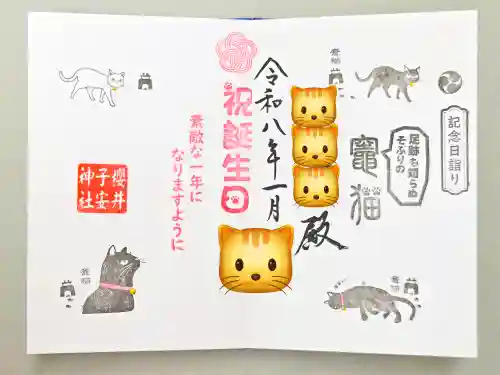 記念日詣り
足跡も
そふりの
竈猫
殿
令和八年一月
祝誕生日
素敵な一年に
なりますように
櫻井
子安
神社
竈猫
竈猫
竈猫